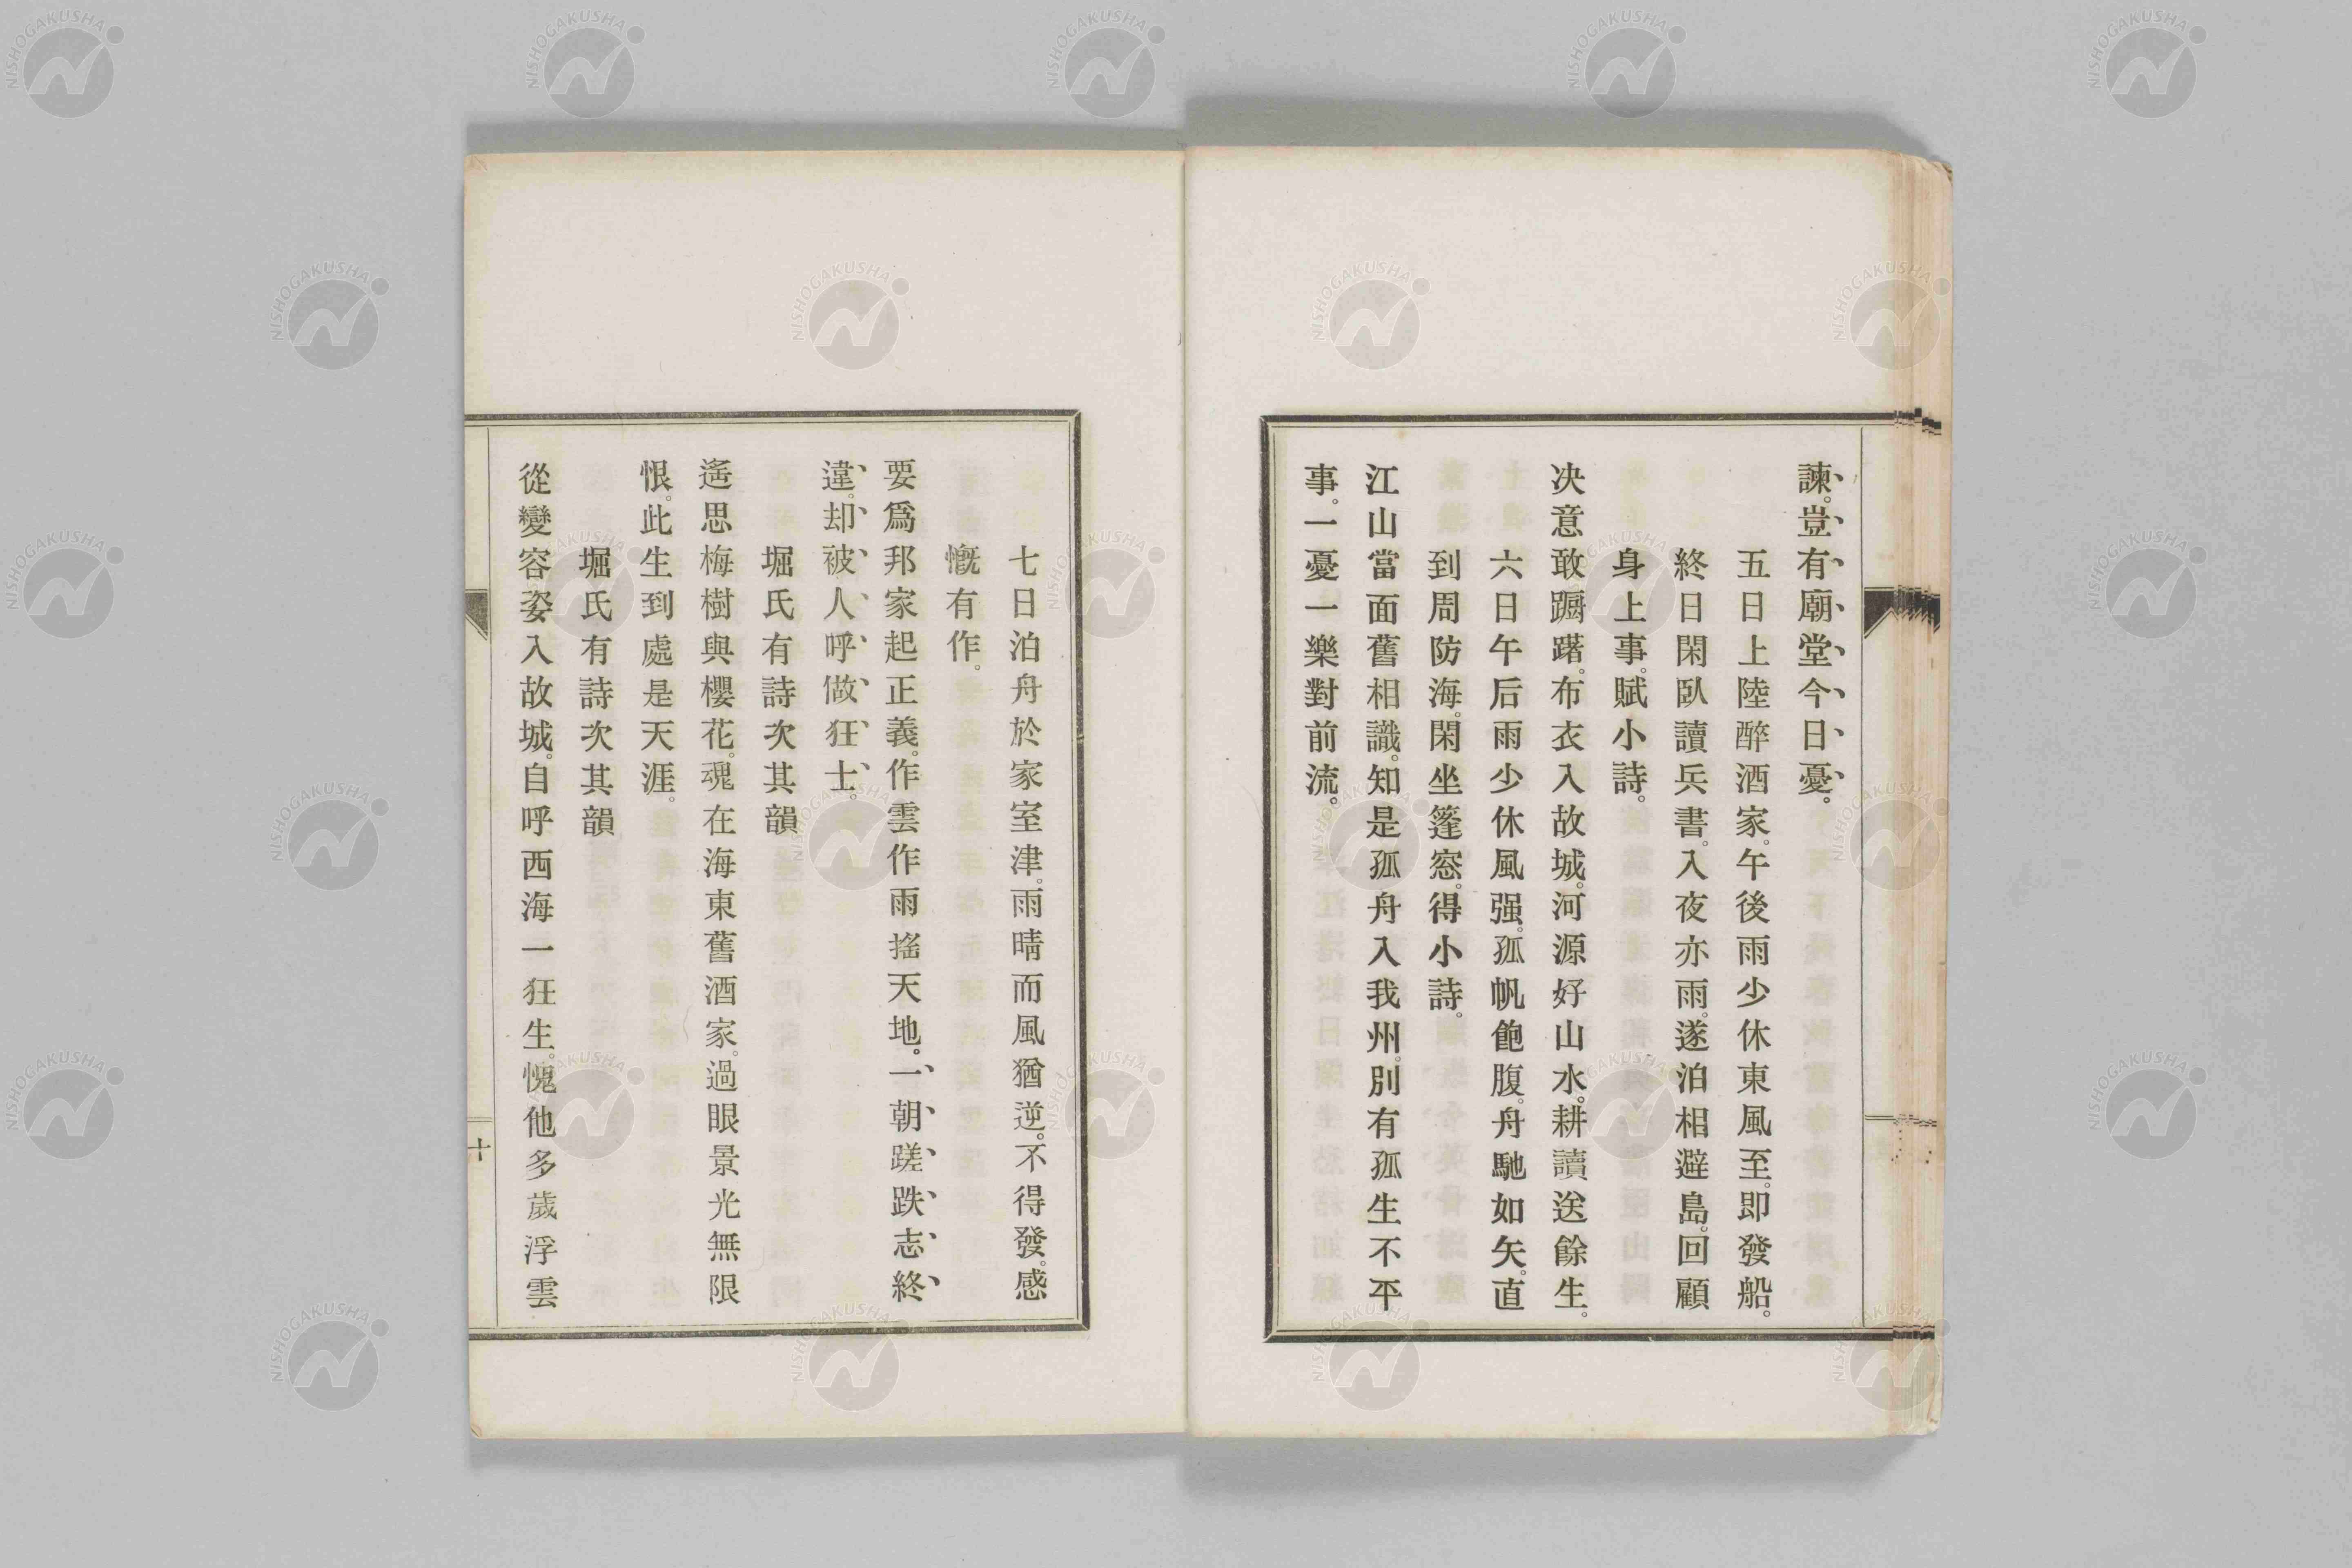 諫。豈有廟堂今日憂。
五日上陸醉酒家。午後雨少休東風至。即發船。
終日閑臥讀兵書。入夜亦雨。遂泊相避島。回顧
身上事。賦小詩。
決意敢躕躇。布衣入故城。河源好山水。耕讀送餘生。
六日午后雨少休風强。孤帆飽腹。舟馳如矢。直
到周防海。閑坐篷窓。得小詩。
江山當面舊相識。知是孤舟入我州。別有孤生不平
事。一憂一樂對前流。
七日泊舟於家室津。雨晴而風猶逆。不得發。感
慨有作。
要爲邦家起正義。作雲作雨搖天地。一朝蹉跌志終
違。却被人呼做狂士。
堀氏有詩次其韻
遙思梅樹與櫻花。魂在海東舊酒家。過眼景光無限
恨。此生到處是天涯。
堀氏有詩次其韻
從變容姿入故城。自呼西海一狂生。愧他多歲浮雲
十
NISHOGAKUSHA